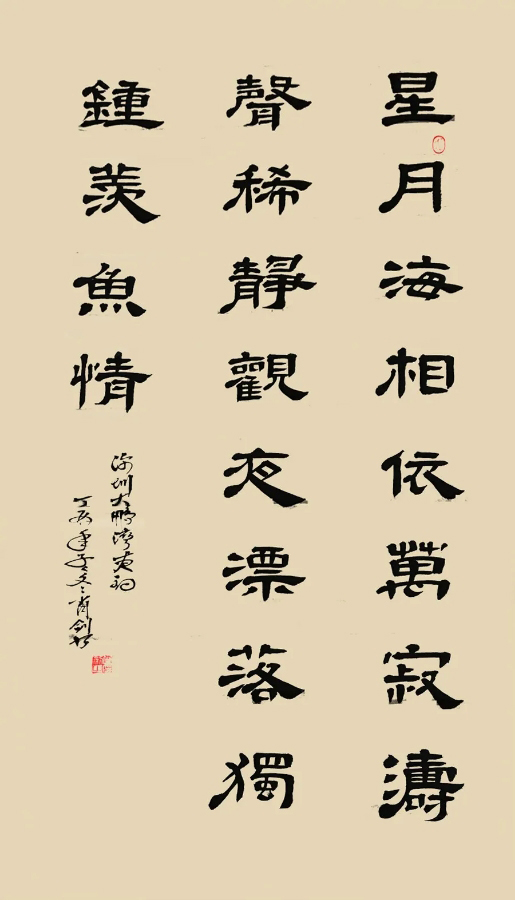 星月海相依萬寂濤
聲稀靜觀夜漂落獨
鍾羨魚情
深圳大鵬灣夜釣
丁亥年冬